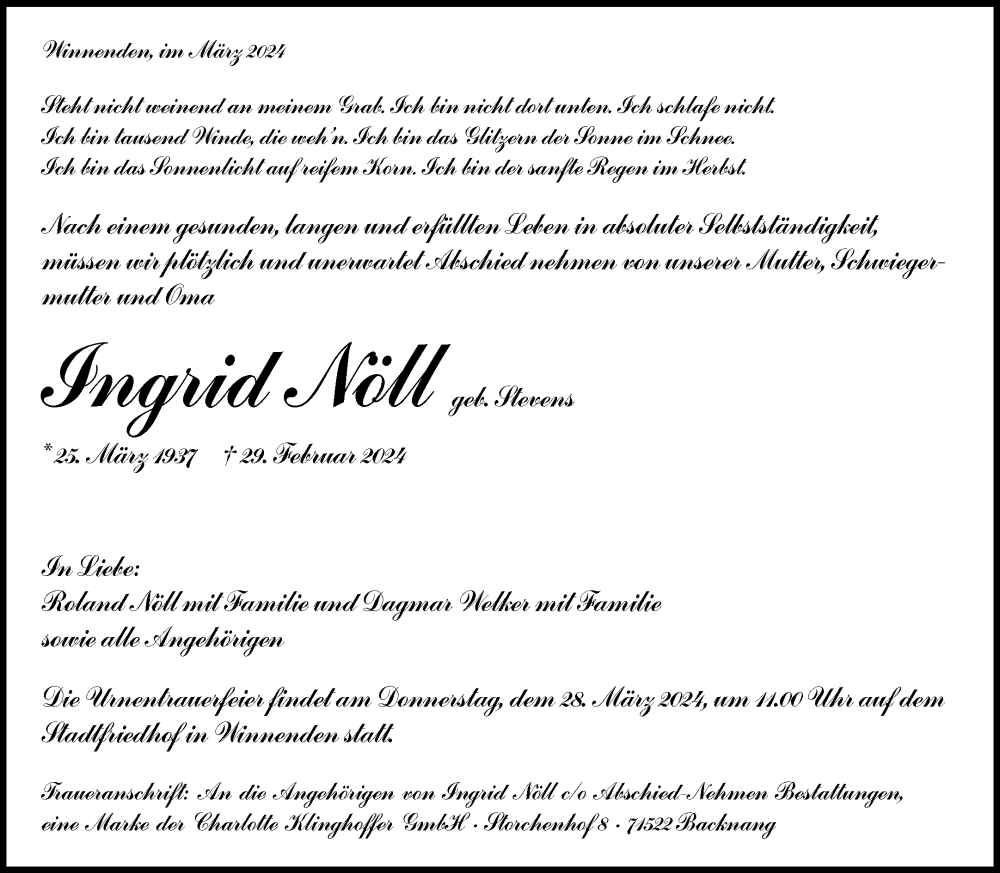 Winnenden, im März 2024
Steht nicht weinend an meinem Grab. Ich bin nicht dort unten. Ich schlafe nicht.
Ich bin tausend Winde, die weh'n. Ich bin das Glitzern der Sonne im Schnee.
Ich bin das Sonnenlicht auf reifem Korn. Ich bin der sanfte Regen im Herbst.
Nach einem gesunden, langen und erfüllten Leben in absoluter Selbstständigkeit,
müssen wir plötzlich und unerwartet Abschied nehmen von unserer Mutter, Schwieger-
mutter und Oma
Ingrid Nöll geb. Stevens
* 25. März 1937 † 29. Februar 2024
In Liebe:
Roland Nöll mit Familie und Dagmar Welker mit Familie
sowie alle Angehörigen
Die Urnentrauerfeier findet am Donnerstag, dem 28. März 2024, um 11.00 Uhr auf dem
Stadtfriedhof in Winnenden statt.
Traueranschrift: An die Angehörigen von Ingrid Nöll c/o Abschied-Nehmen Bestattungen,
eine Marke der Charlotte Klinghoffer GmbH · Storchenhof 8 · 71522 Backnang